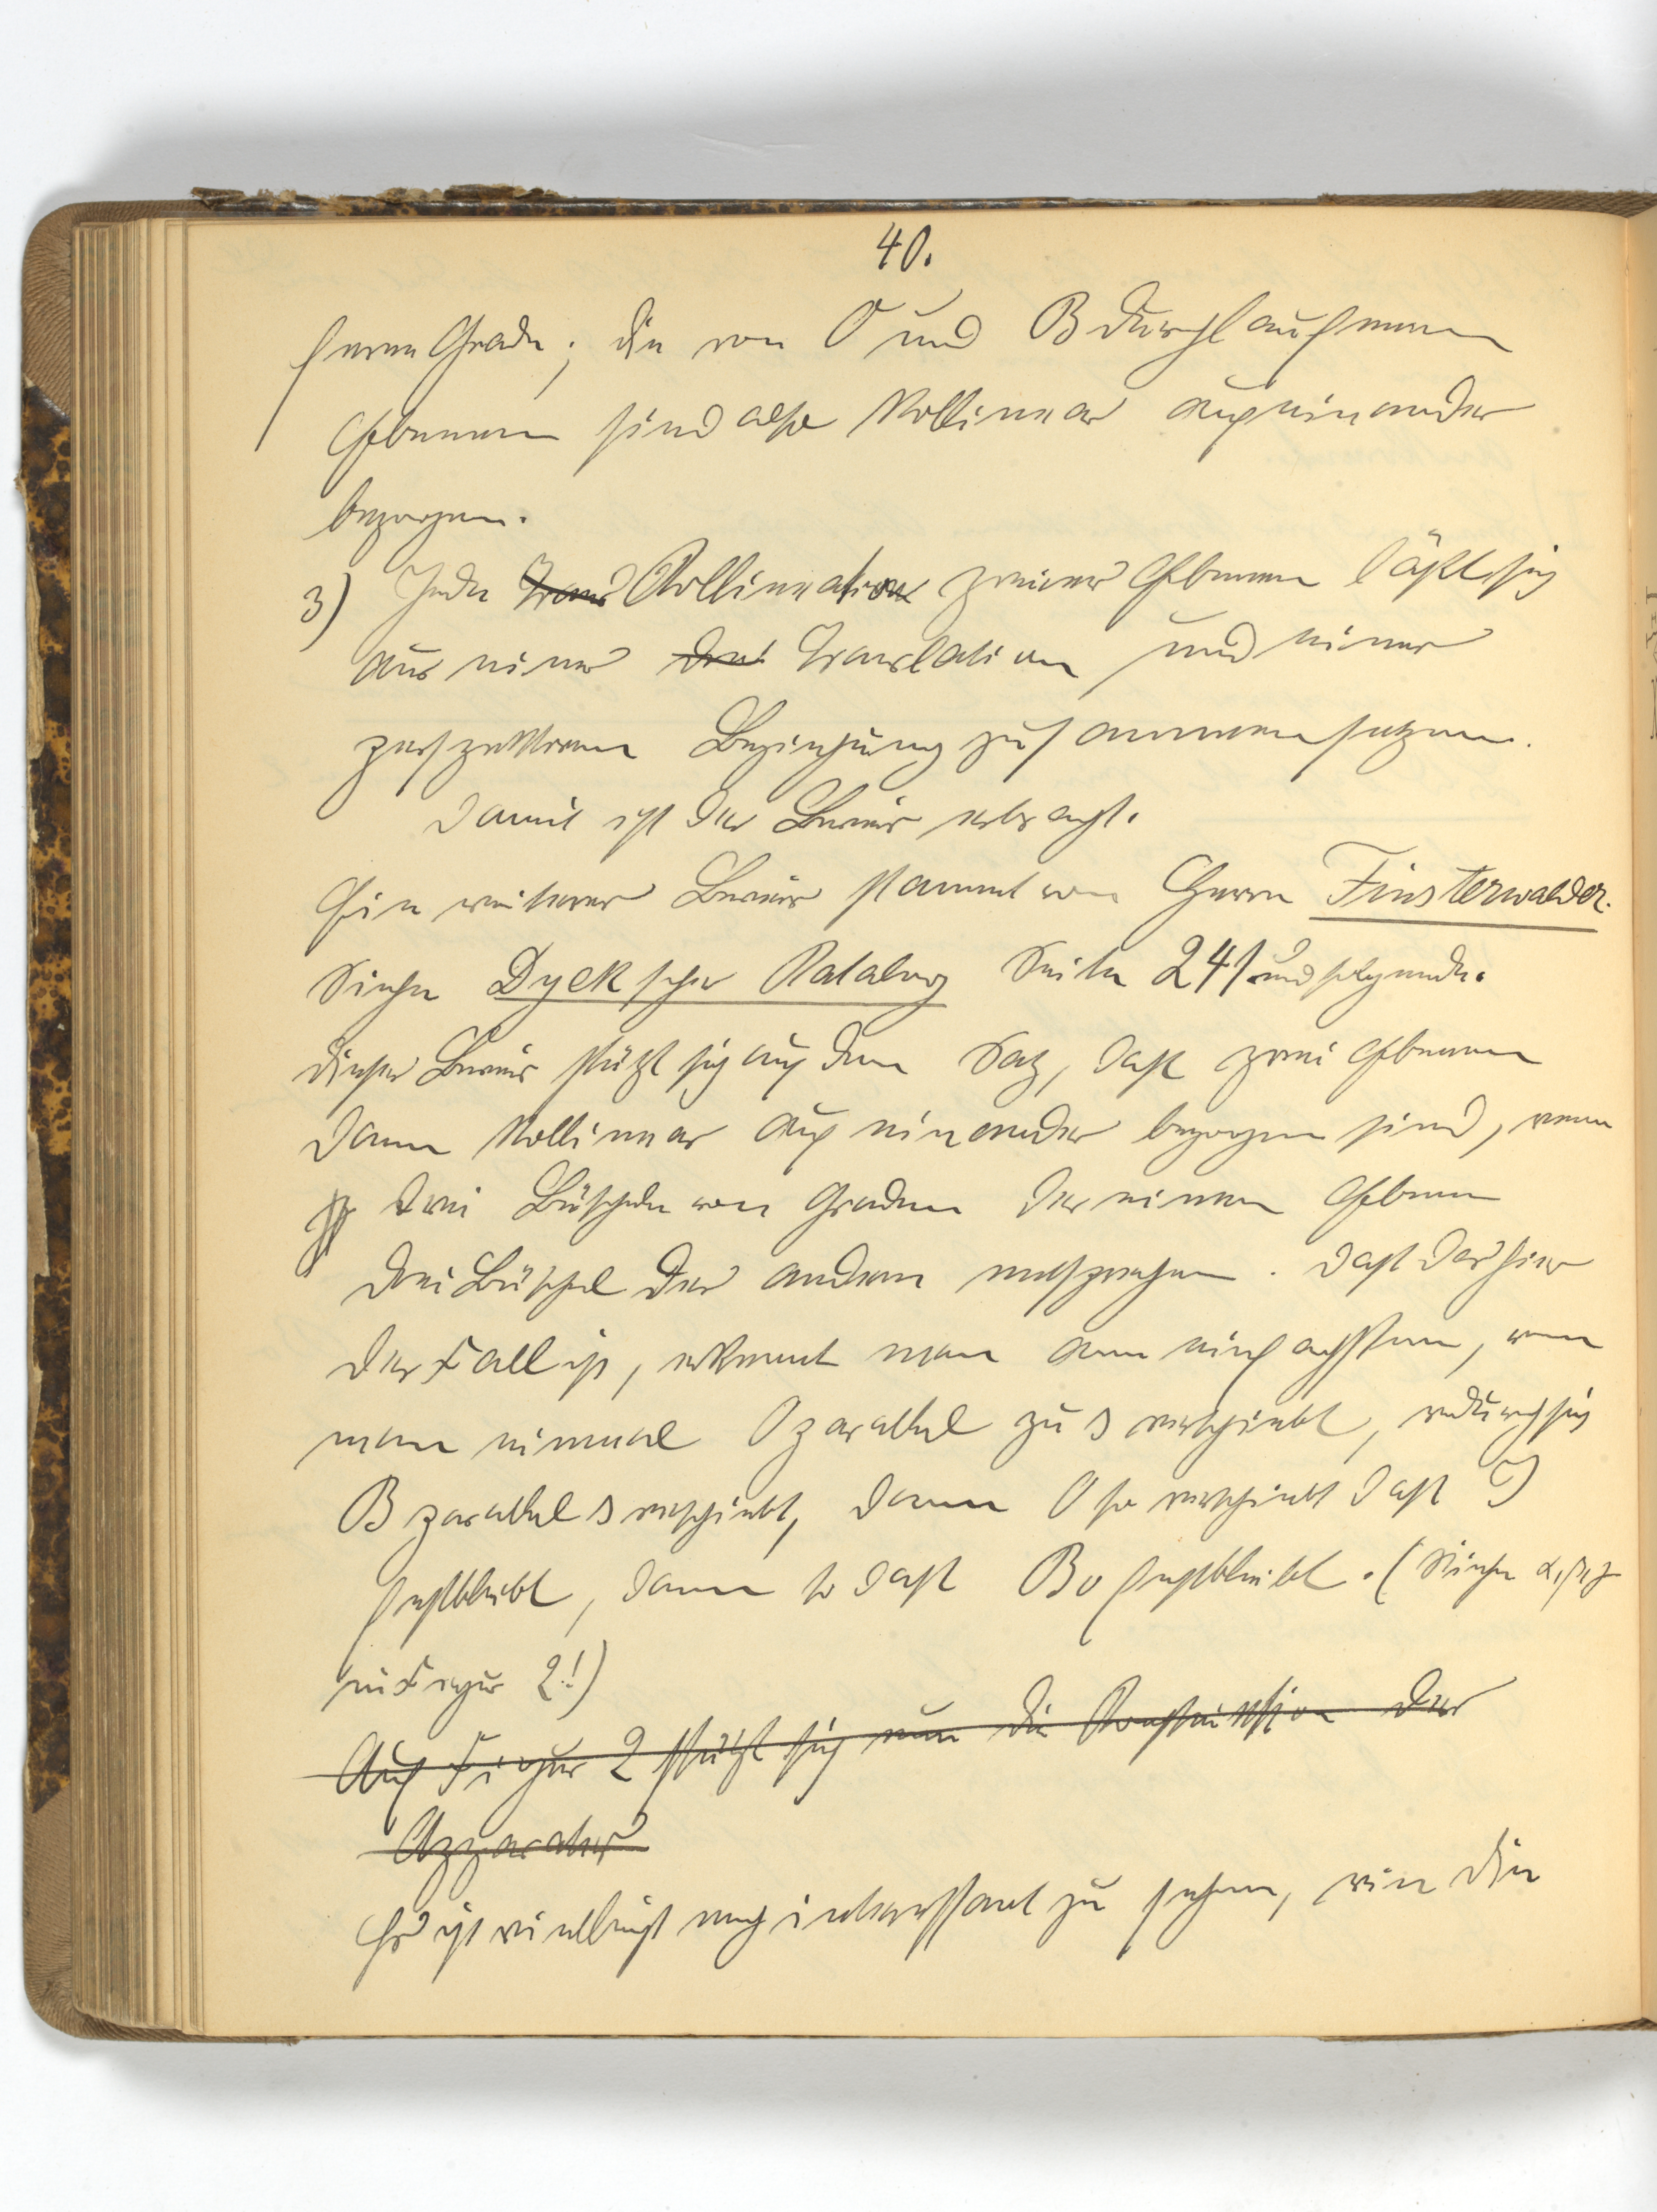 40.
feren Grade; die von O und B durchlaufenen
Ebenen sind also kollinear aufeinander
bezogen.
3) Jede Trans Kollineation zweier Ebenen läßt sich
aus einer drei Translation und einer
perspektiven Beziehung zusammensetzen.
Damit ist der Beweis erbracht.
Ein weiterer Beweis stammt von Herrn Finsterwalder.
Siehe Dyckscher Katalog Seite 241 und folgende.
Dieser Beweis stützt sich auf den Satz, daß zwei Ebenen
dann kollinear auf einander bezogen sind, wenn
drei Büscheln von Graden der einen Ebene
drei Büschel der andern entsprechen. Daß das hier
der Fall ist, erkennt man am einfachsten, wenn
man einmal O parallel zu s verschiebt, wodurch sich
B parallel s verschiebt, dann O so verschiebt daß J
festbleibt, dann so daß Bo festbleibt. (Siehe α, β, γ
in Figur 2!)
Auf Figur 2 stützt sich nun die Konstruktion der
Apparates
Es ist vielleicht noch interessant zu sehen, wie die